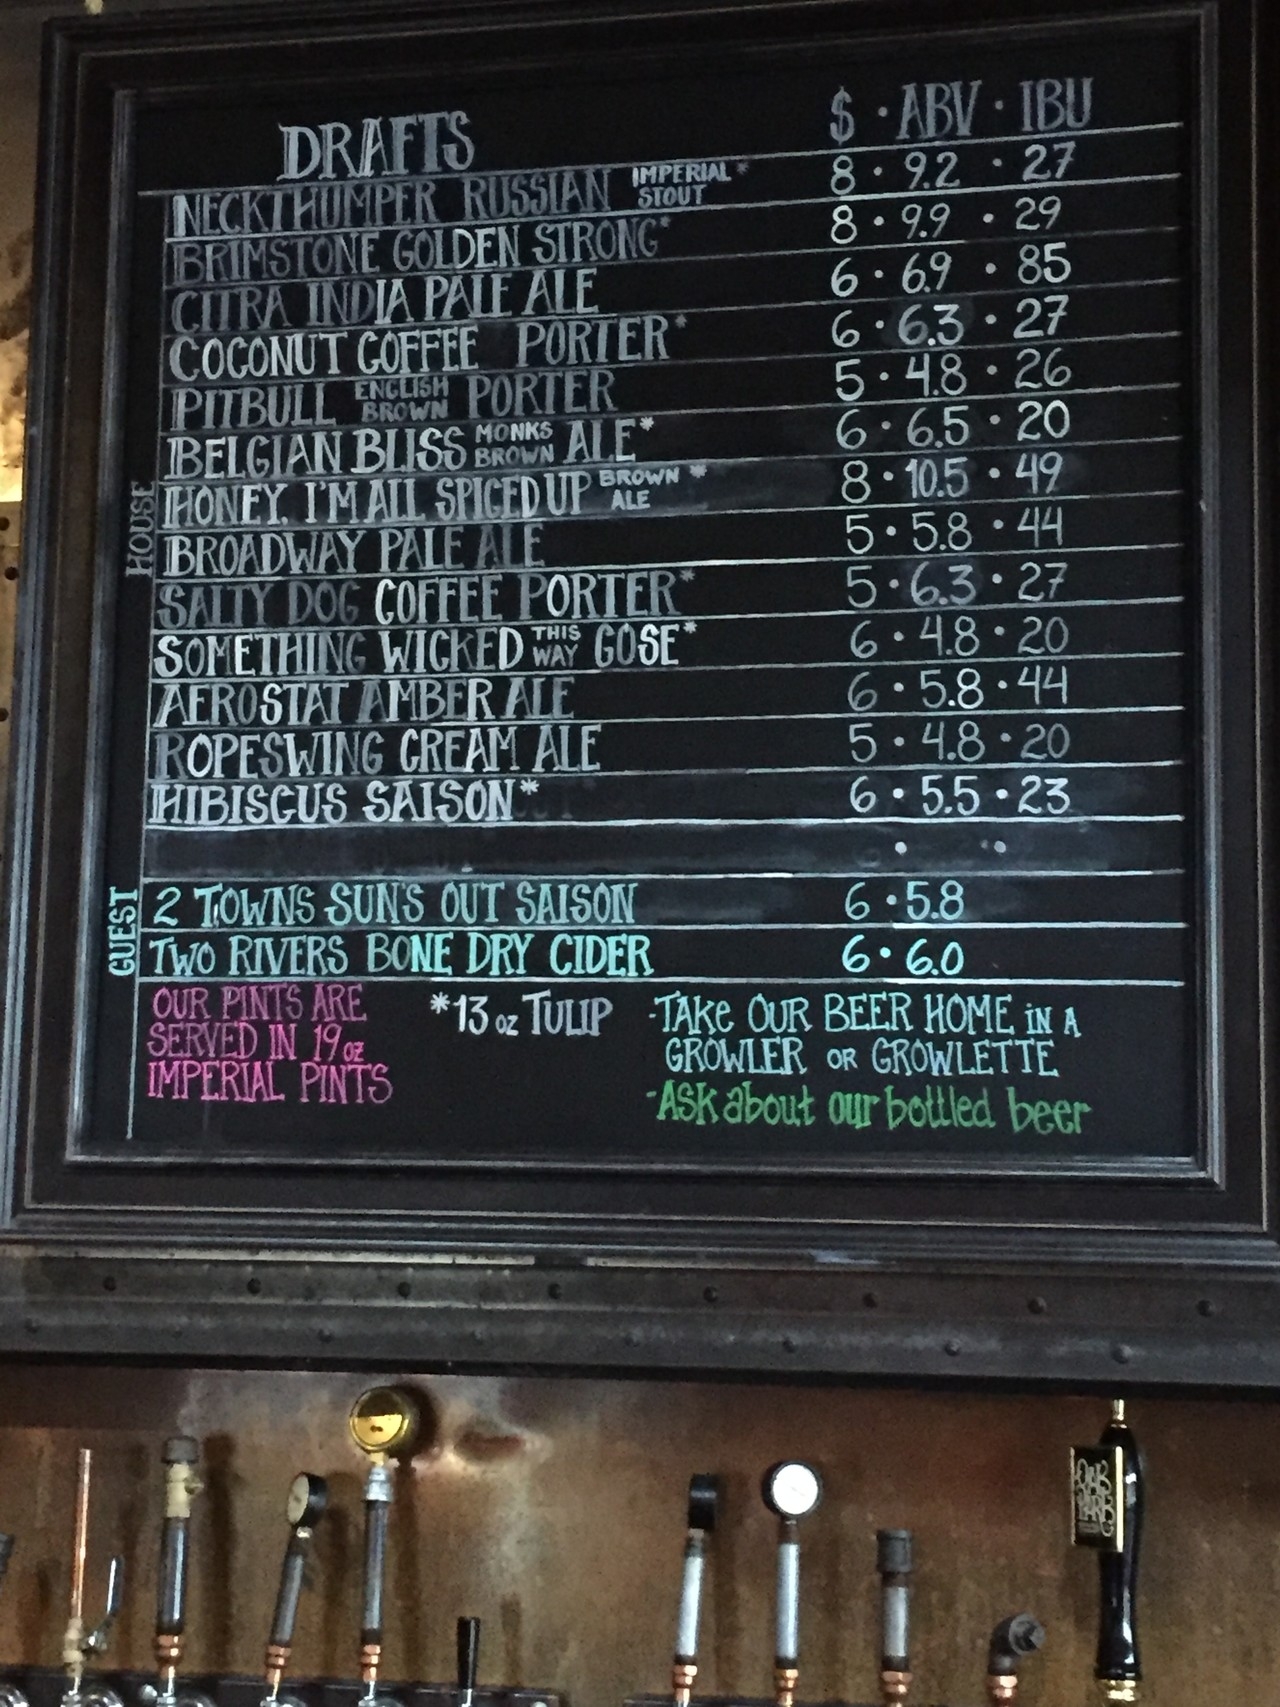 DRAFTS $ · ABV · IBU
HOUSE
NECKTHUMPER RUSSIAN IMPERIAL STOUT* 8 · 9.2 · 27
BRIMSTONE GOLDEN STRONG* 8 · 9.9 · 29
CITRA INDIA PALE ALE 6 · 6.9 · 85
COCONUT COFFEE PORTER* 6 · 6.3 · 27
PITBULL ENGLISH BROWN PORTER 5 · 4.8 · 26
BELGIAN BLISS MONKS BROWN ALE* 6 · 6.5 · 20
HONEY, I'M ALL SPICED UP BROWN ALE* 8 · 10.5 · 49
BROADWAY PALE ALE 5 · 5.8 · 44
SALTY DOG COFFEE PORTER* 5 · 6.3 · 27
SOMETHING WICKED THIS WAY GOSE* 6 · 4.8 · 20
AEROSTAT AMBER ALE 6 · 5.8 · 44
ROPESWING CREAM ALE 5 · 4.8 · 20
HIBISCUS SAISON* 6 · 5.5 · 23
GUEST
2 TOWNS SUN'S OUT SAISON 6 · 5.8
TWO RIVERS BONE DRY CIDER 6 · 6.0
OUR PINTS ARE
SERVED IN 19 oz
IMPERIAL PINTS
*13 oz TULIP
-TAKE OUR BEER HOME IN A
GROWLER OR GROWLETTE
-ASK about our bottled beer
OAK
PARK